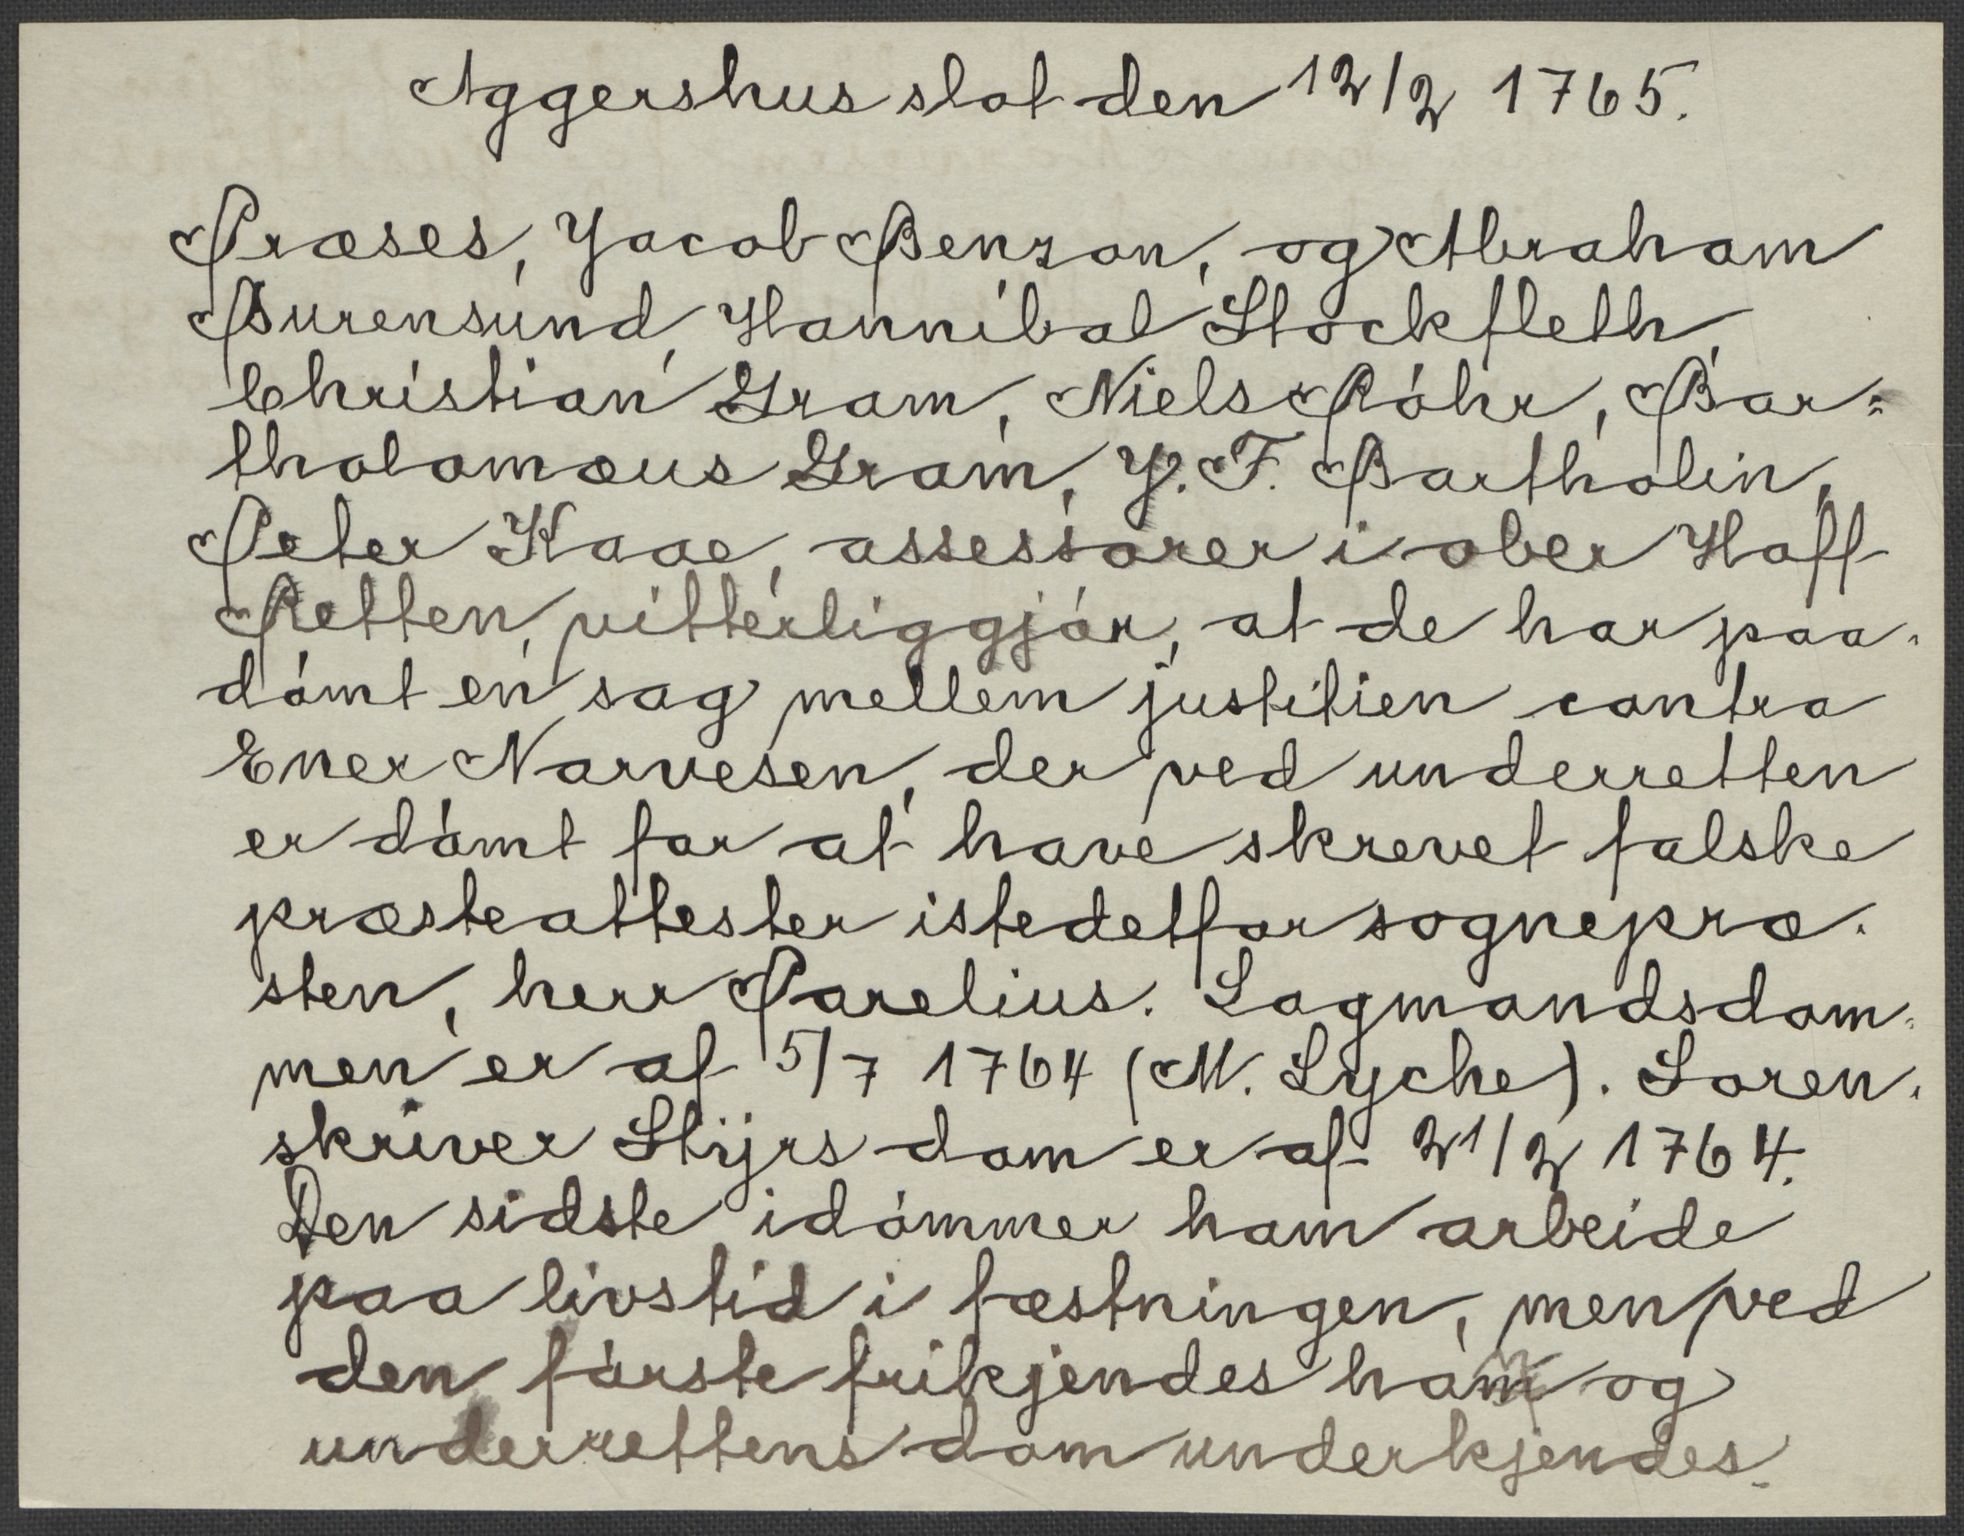 Aggershus slot den 12/2 1765.
Præses, Jacob Benzon, og Abraham
Burensund, Hannibal Stockfleth,
Christian Gram, Niels Röhr, Bar-
tholomæus Gram, J. F. Bartholin,
Peter Kaae, assessorer i ober Hoff
Retten, vitterliggjör, at de har paa-
dömt en sag mellem justitien contra
Ener Narvesen, der ved underretten
er dömt for at have skrevet falske
præsteattester istedetfor sognepræ-
sten, herr Parelius. Lagmandsdom-
men er af 5/7 1764 (M. Lyche). Soren-
skriver Stijrs dom er af 21/2 1764.
Den sidste idömmer ham arbeide
paa livstid i fæstningen, men ved
den förste frikjendes han og
underrettens dom underkjendes.